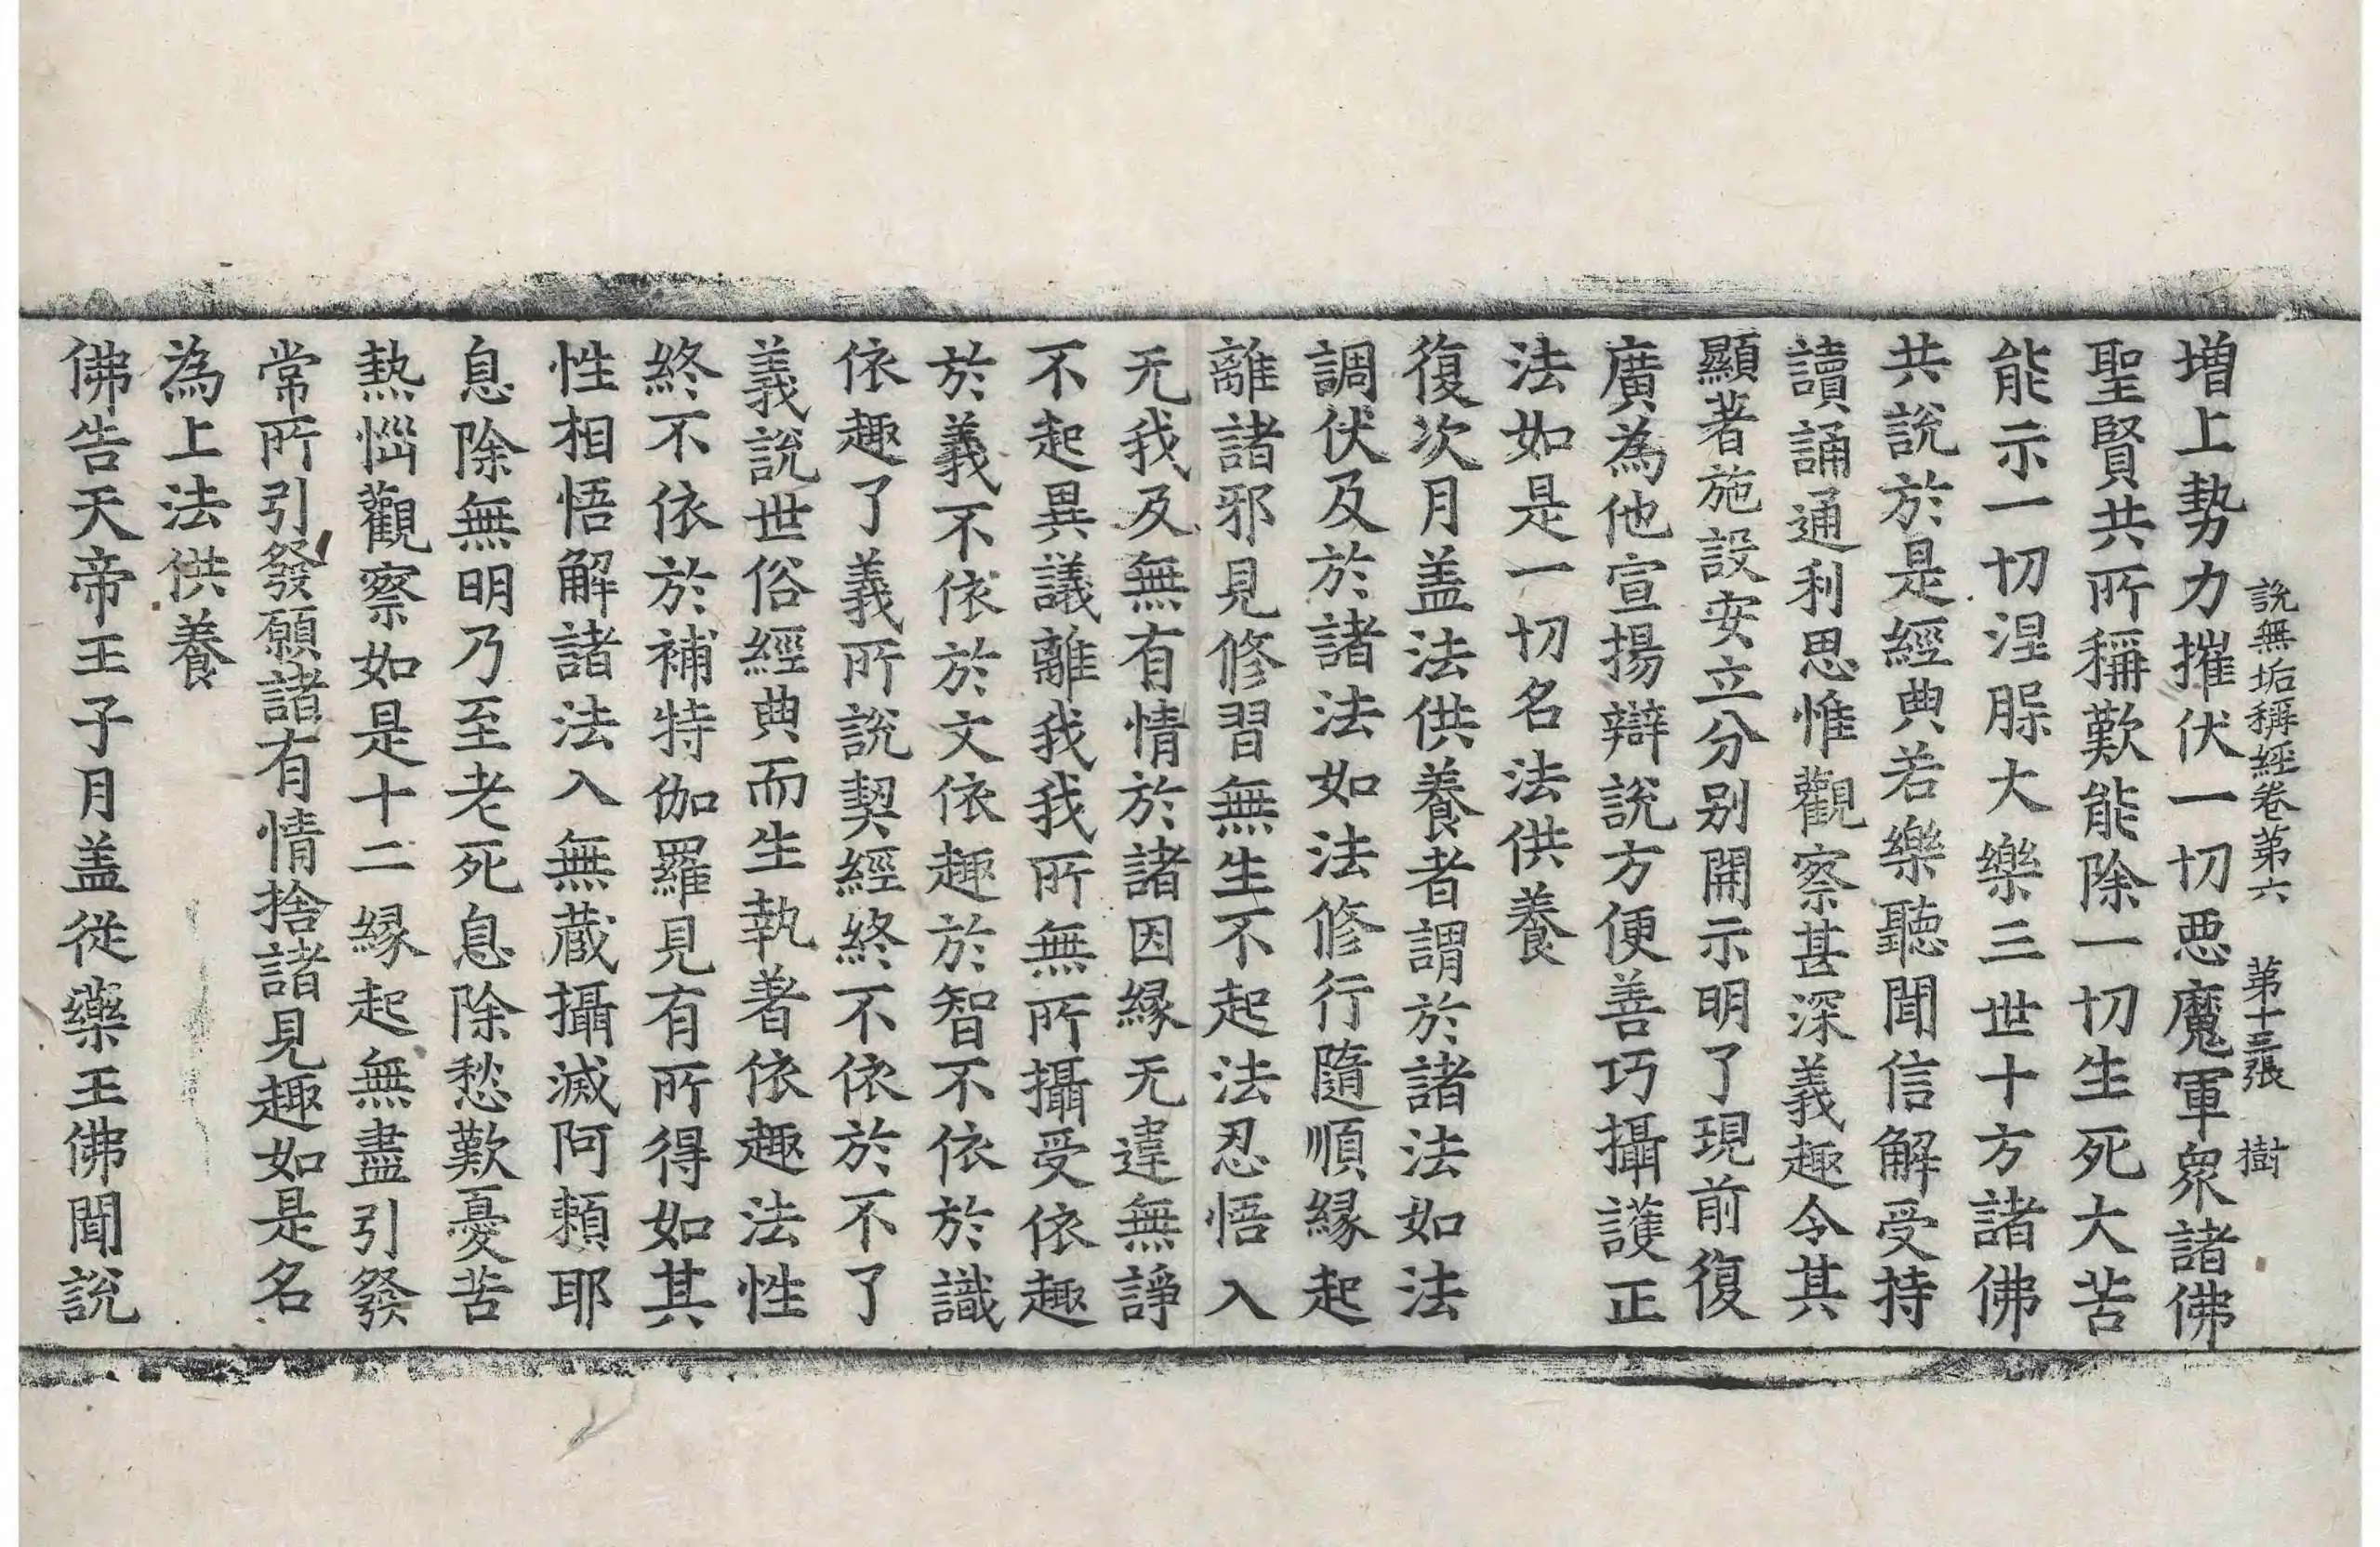 說無垢稱經卷第六　第十三張　樹
增上勢力摧伏一切惡魔軍衆諸佛
聖賢共所稱歎能除一切生死大苦
能示一切涅脲大樂三世十方諸佛
共說於是經典若樂聽聞信解受持
讀誦通利思惟觀察甚深義趣令其
顯著施設安立分別開示明了現前復
廣為他宣揚辯說方便善巧攝護正
法如是一切名法供養
復次月盖法供養者謂於諸法如法
調伏及於諸法如法修行隨順緣起
離諸邪見修習無生不起法忍悟入
无我及無有情於諸因緣无違無諍
不起異議離我我所無所攝受依趣
於義不依於文依趣於智不依於識
依趣了義所說契經終不依於不了
義說世俗經典而生執著依趣法性
終不依於補特伽羅見有所得如其
性相悟解諸法入無蔵攝滅阿頼耶
息除無明乃至老死息除愁歎憂苦
熱惱觀察如是十二緣起無盡引發
常所引發願諸有情捨諸見趣如是名
為上法供養
佛告天帝王子月盖從藥王佛聞說